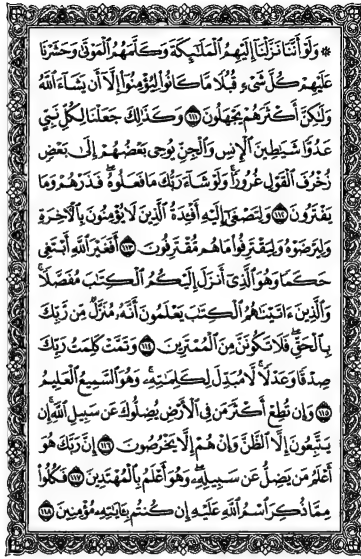 ۞ وَلَوْ أَنَّنَا نَزَّلْنَا إِلَيْهِمُ الْمَلَٰٓئِكَةَ وَكَلَّمَهُمُ الْمَوْتَىٰ وَحَشَرْنَا
عَلَيْهِمْ كُلَّ شَىْءٍ قُبُلًا مَّا كَانُوا۟ لِيُؤْمِنُوٓا۟ إِلَّآ أَن يَشَآءَ اللَّهُ
وَلَٰكِنَّ أَكْثَرَهُمْ يَجْهَلُونَ ١١١ وَكَذَٰلِكَ جَعَلْنَا لِكُلِّ نَبِىٍّ
عَدُوًّا شَيَٰطِينَ الْإِنسِ وَالْجِنِّ يُوحِى بَعْضُهُمْ إِلَىٰ بَعْضٍ
زُخْرُفَ الْقَوْلِ غُرُورًا ۚ وَلَوْ شَآءَ رَبُّكَ مَا فَعَلُوهُ ۖ فَذَرْهُمْ وَمَا
يَفْتَرُونَ ١١٢ وَلِتَصْغَىٰٓ إِلَيْهِ أَفْـِٔدَةُ الَّذِينَ لَا يُؤْمِنُونَ بِالْءَاخِرَةِ
وَلِيَرْضَوْهُ وَلِيَقْتَرِفُوا۟ مَا هُم مُّقْتَرِفُونَ ١١٣ أَفَغَيْرَ اللَّهِ أَبْتَغِى
حَكَمًا وَهُوَ الَّذِىٓ أَنزَلَ إِلَيْكُمُ الْكِتَٰبَ مُفَصَّلًا ۚ
وَالَّذِينَ ءَاتَيْنَٰهُمُ الْكِتَٰبَ يَعْلَمُونَ أَنَّهُۥ مُنَزَّلٌ مِّن رَّبِّكَ
بِالْحَقِّ ۖ فَلَا تَكُونَنَّ مِنَ الْمُمْتَرِينَ ١١٤ وَتَمَّتْ كَلِمَتُ رَبِّكَ
صِدْقًا وَعَدْلًا ۚ لَّا مُبَدِّلَ لِكَلِمَٰتِهِۦ ۚ وَهُوَ السَّمِيعُ الْعَلِيمُ
١١٥ وَإِن تُطِعْ أَكْثَرَ مَن فِى الْأَرْضِ يُضِلُّوكَ عَن سَبِيلِ اللَّهِ ۚ إِن
يَتَّبِعُونَ إِلَّا الظَّنَّ وَإِنْ هُمْ إِلَّا يَخْرُصُونَ ١١٦ إِنَّ رَبَّكَ هُوَ
أَعْلَمُ مَن يَضِلُّ عَن سَبِيلِهِۦ ۖ وَهُوَ أَعْلَمُ بِالْمُهْتَدِينَ ١١٧ فَكُلُوا۟
مِمَّا ذُكِرَ اسْمُ اللَّهِ عَلَيْهِ إِن كُنتُم بِـَٔايَٰتِهِۦ مُؤْمِنِينَ ١١٨